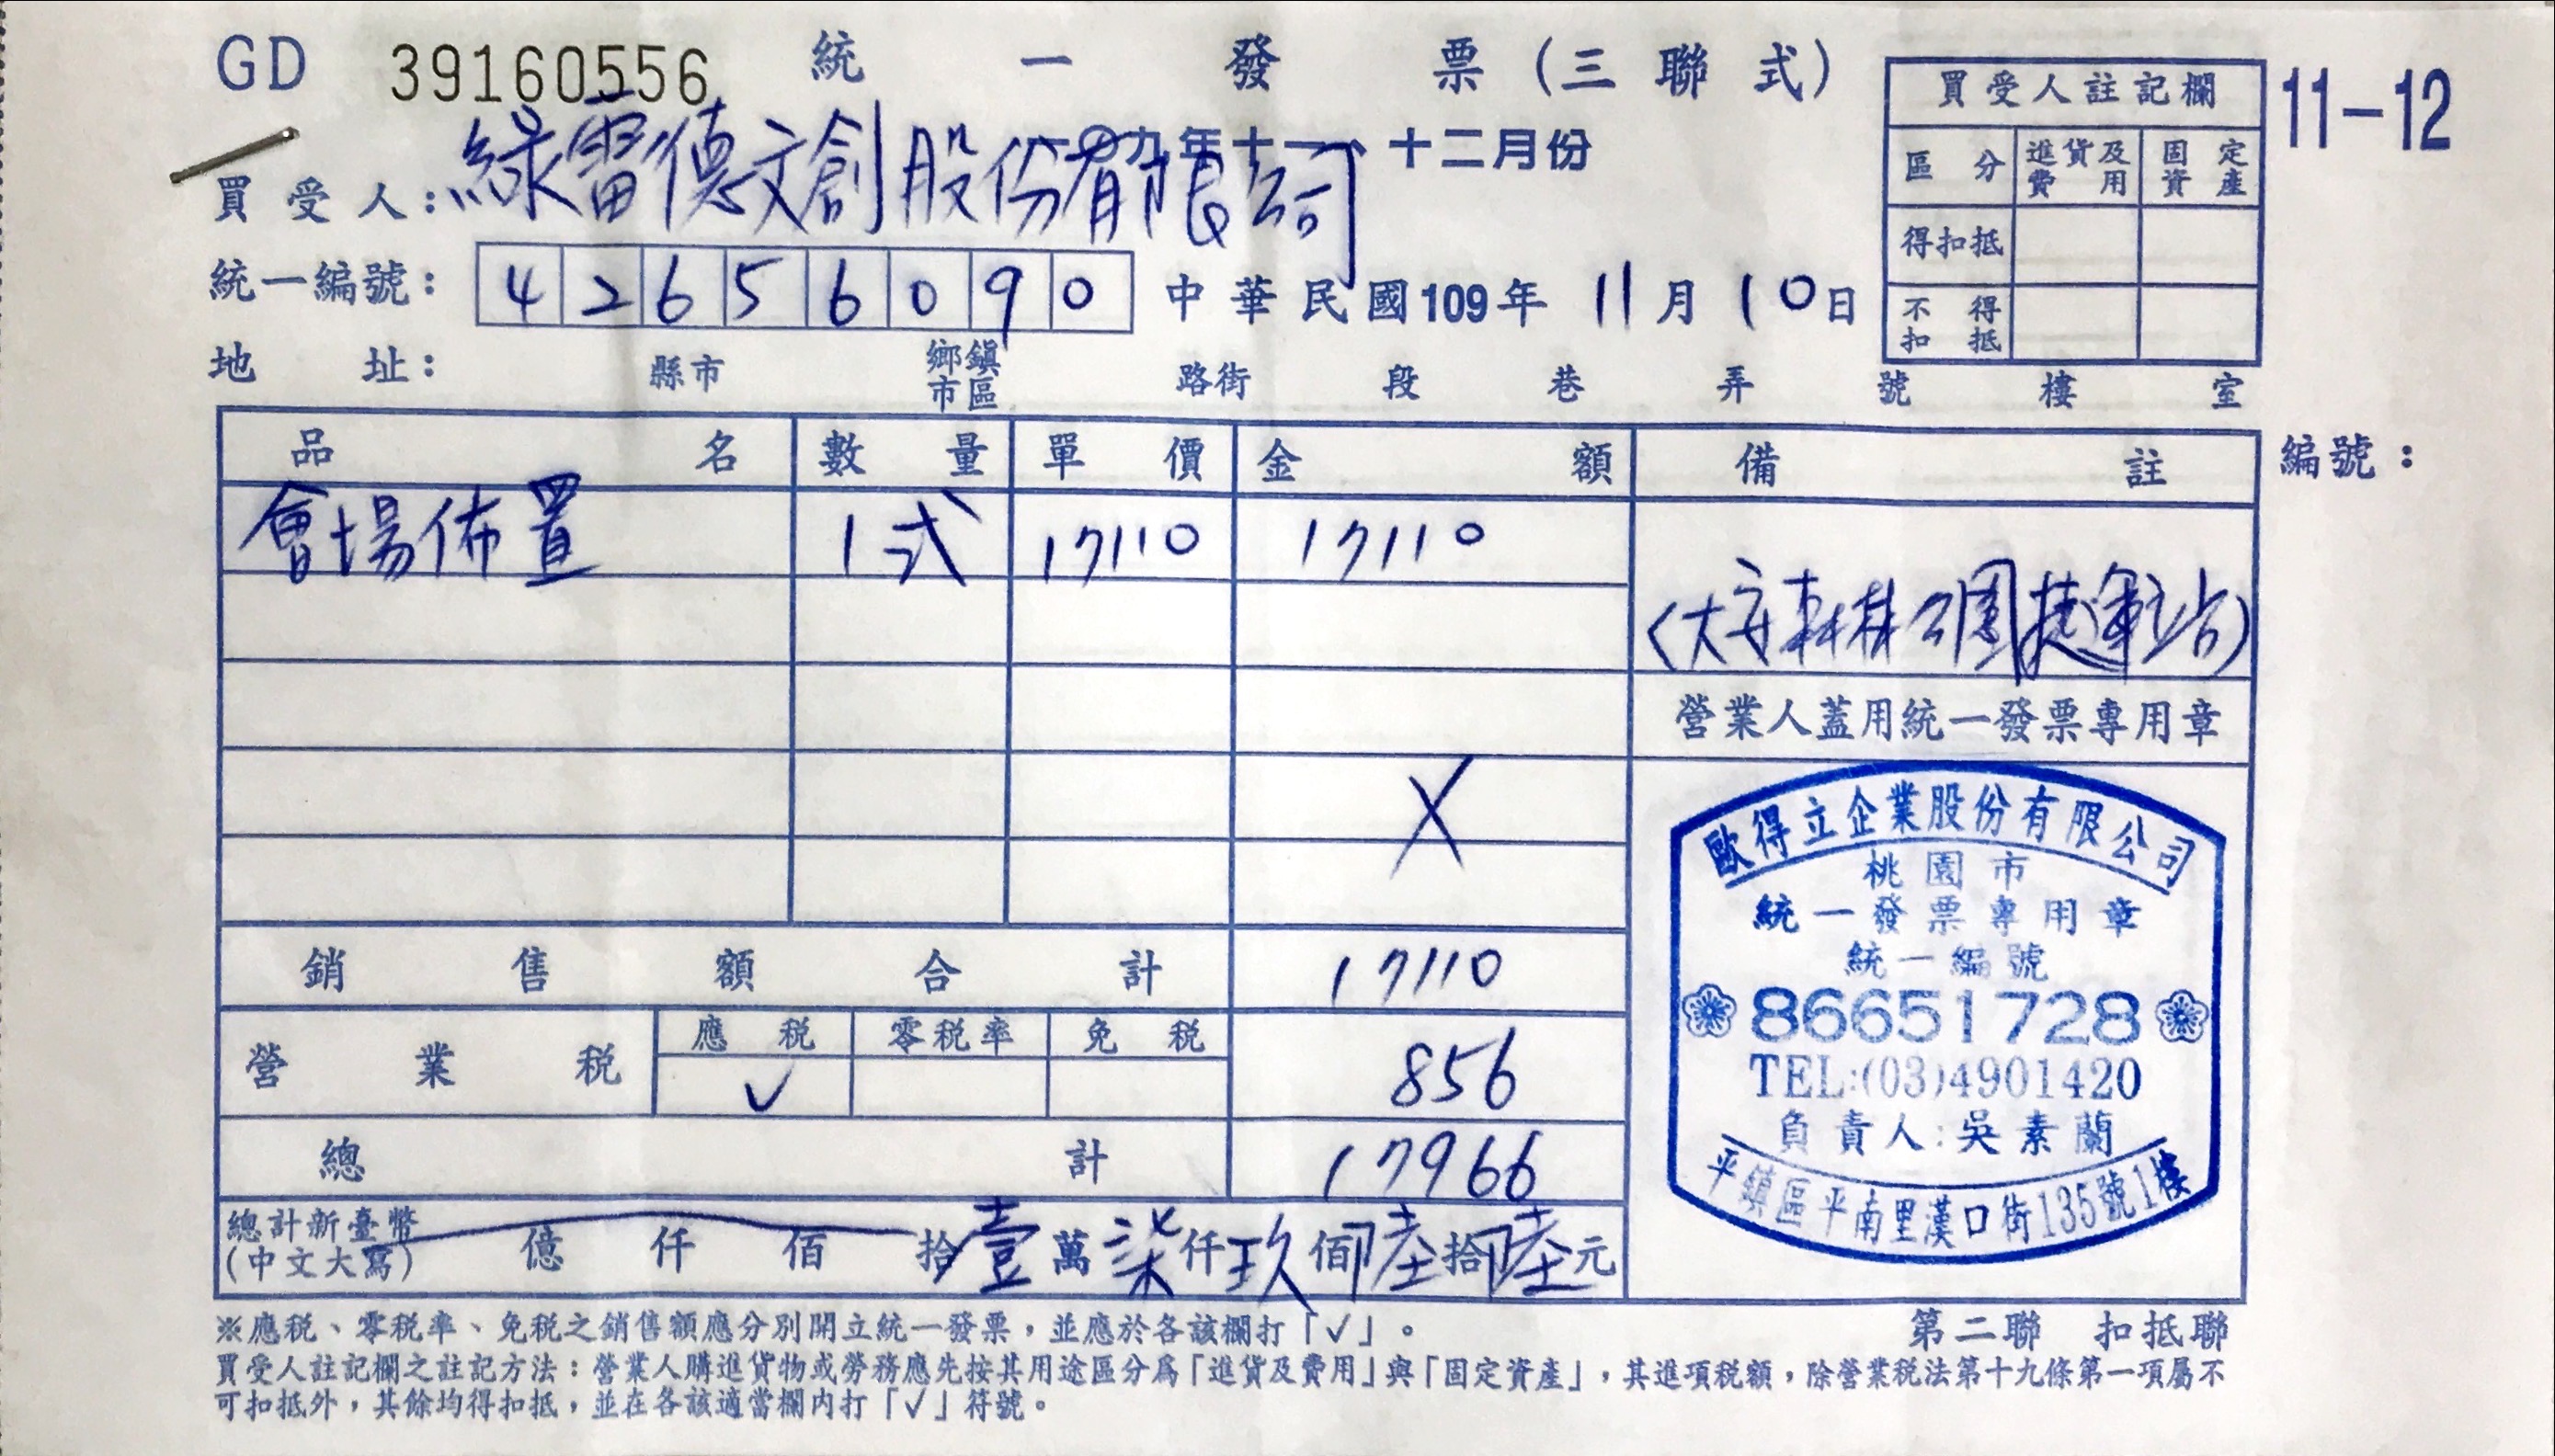 GD 39160556 統一發票(三聯式)
一〇九年十一、十二月份
11-12
買受人:綠雷德文創股份有限公司
統一編號:42656090 中華民國109年11月10日
地址: 縣市 鄉鎮市區 路街 段 巷 弄 號 樓 室
買受人註記欄
區分 進貨及費用 固定資產
得扣抵
不得扣抵
編號:
品名 數量 單價 金額 備註
會場佈置 1式 17110 17110
(大安森林公園捷運站)
營業人蓋用統一發票專用章
X
銷售額合計 17110
營業稅 應稅 零稅率 免稅
✓ 856
總計 17966
總計新臺幣(中文大寫) 億仟佰拾壹萬柒仟玖佰陸拾陸元
歐得立企業股份有限公司
桃園市
統一發票專用章
統一編號
86651728
TEL:(03)4901420
負責人:吳素蘭
平鎮區平南里漢口街135號1樓
※應稅、零稅率、免稅之銷售額應分別開立統一發票,並應於各該欄打「✓」。
第二聯 扣抵聯
買受人註記欄之註記方法:營業人購進貨物或勞務應先按其用途區分為「進貨及費用」與「固定資產」,其進項稅額,除營業稅法第十九條第一項屬不
可扣抵外,其餘均得扣抵,並在各該適當欄內打「✓」符號。